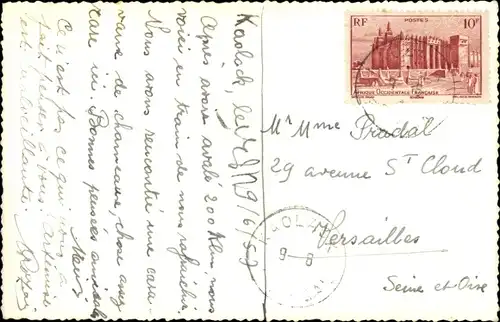 Kaolack, le 9/6/57
Après avoir avalé 200 Km, nous
voici en train de nous rafraîchir.
Nous avons rencontré une cara-
vane de chameaux, chose assez
rare ici. Bonnes pensées amicales
Ce n'est pas ce qui nous a
fait penser à vous.
est bienveillante.
RF POSTES 10F
AFRIQUE OCCIDENTALE FRANÇAISE
M. Mme Pradal
29 avenue St Cloud
Versailles
Seine et Oise
KAOLACK
9-8